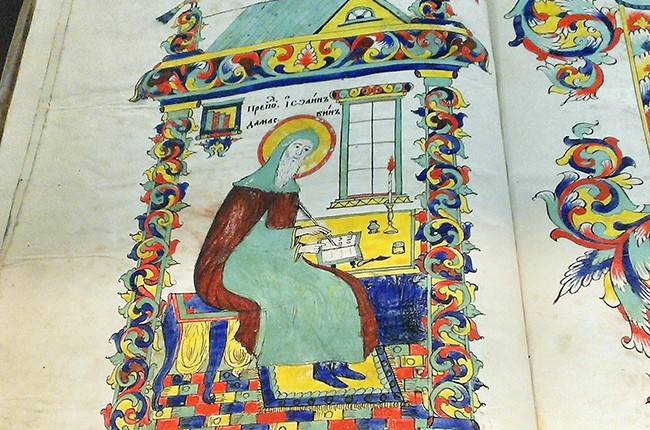 препоⷣ. їѡа́ннъ
дамас кинъ